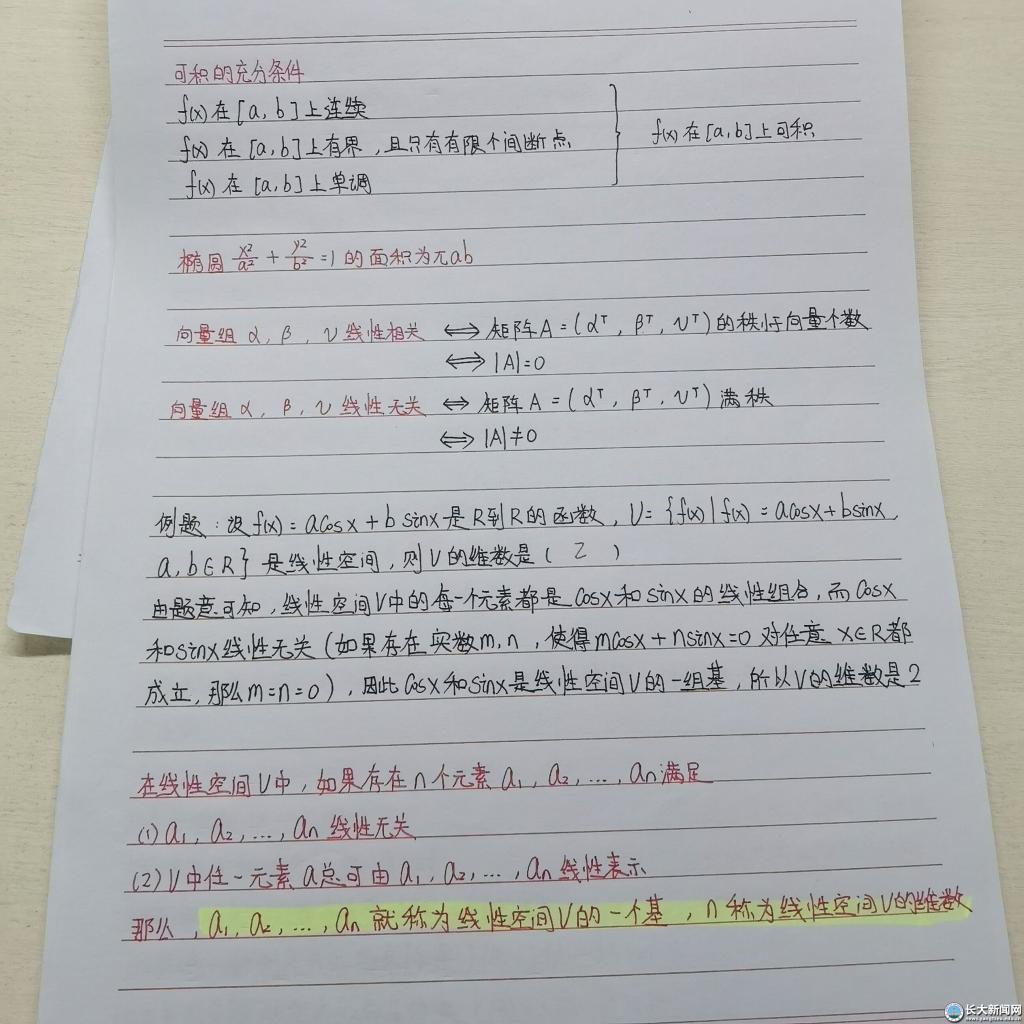 可积的充分条件
f(x)在[a,b]上连续
f(x)在[a,b]上有界,且只有有限个间断点
f(x)在[a,b]上可积
f(x)在[a,b]上单调
椭圆 x²/a² + y²/b² =1的面积为πab
向量组α,β,ν线性相关 ⟺ 矩阵A=(αᵀ,βᵀ,νᵀ)的秩小于向量个数
⟺ |A|=0
向量组α,β,ν线性无关 ⟺ 矩阵A=(αᵀ,βᵀ,νᵀ)满秩
⟺ |A|≠0
例题:设f(x)=acosx+bsinx是R到R的函数,V={f(x)|f(x)=acosx+bsinx,
a,b∈R}是线性空间,则V的维数是( 2 )
由题意可知,线性空间V中的每一个元素都是cosx和sinx的线性组合,而cosx
和sinx线性无关(如果存在实数m,n,使得mcosx+nsinx=0对任意x∈R都
成立,那么m=n=0),因此cosx和sinx是线性空间V的一组基,所以V的维数是2
在线性空间V中,如果存在n个元素a₁,a₂,…,aₙ满足
(1)a₁,a₂,…,aₙ线性无关
(2)V中任一元素a总可由a₁,a₂,…,aₙ线性表示
那么,a₁,a₂,…,aₙ就称为线性空间V的一个基,n称为线性空间V的维数
长大新闻网